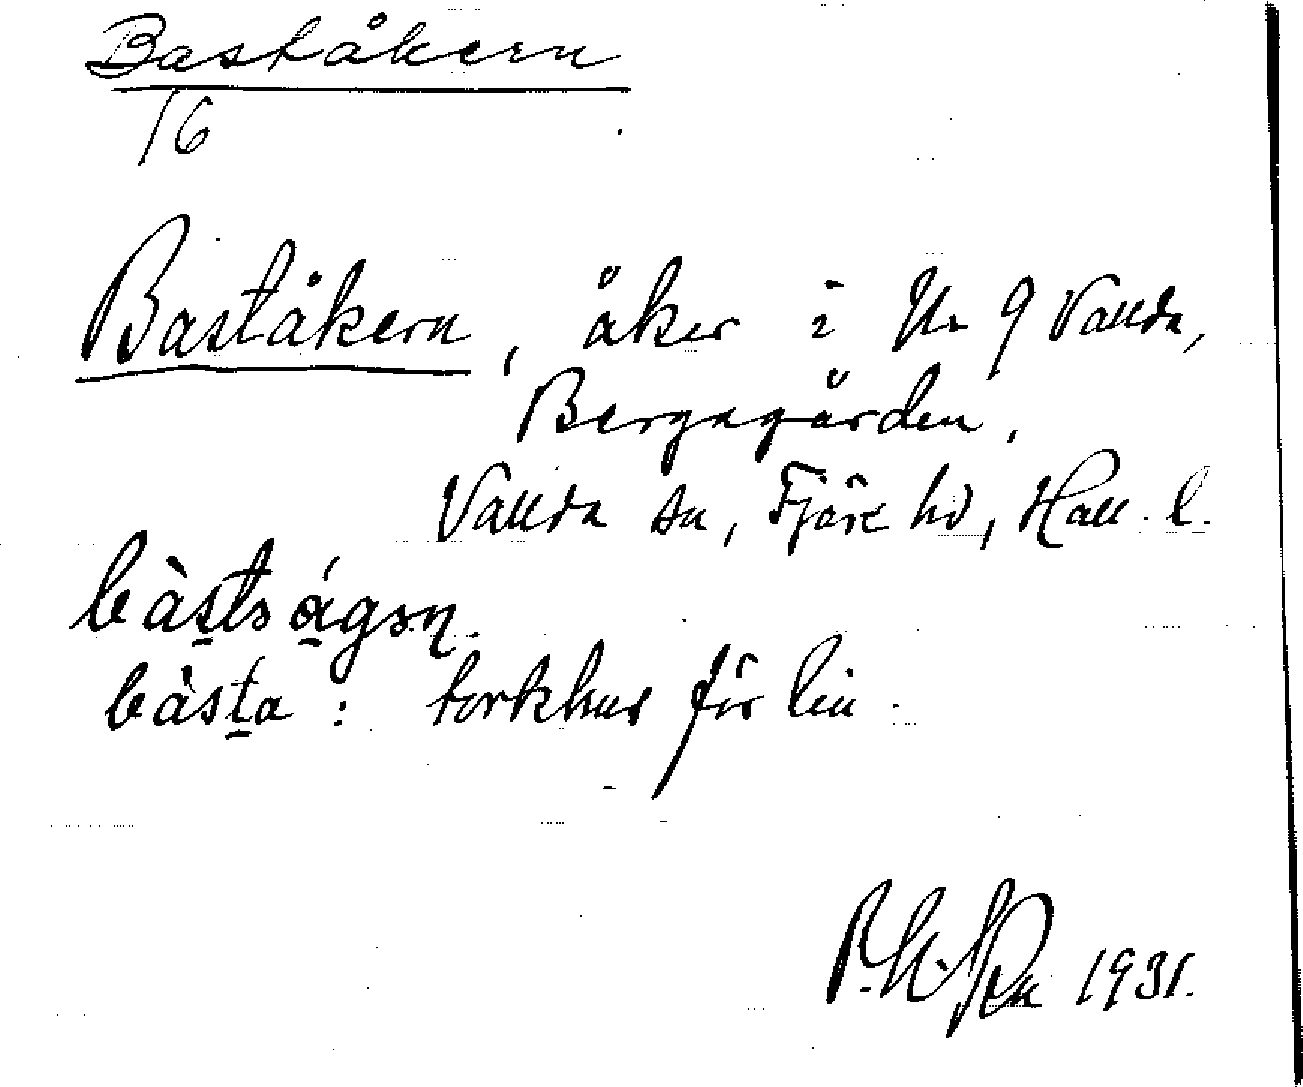 Baståkern
16
Baståkern, åker i Nr 9 Vallda,
Bergagården,
Vallda sn, Fjäre hd, Hall. l.
bàsta : torkhus för lin.
1931.